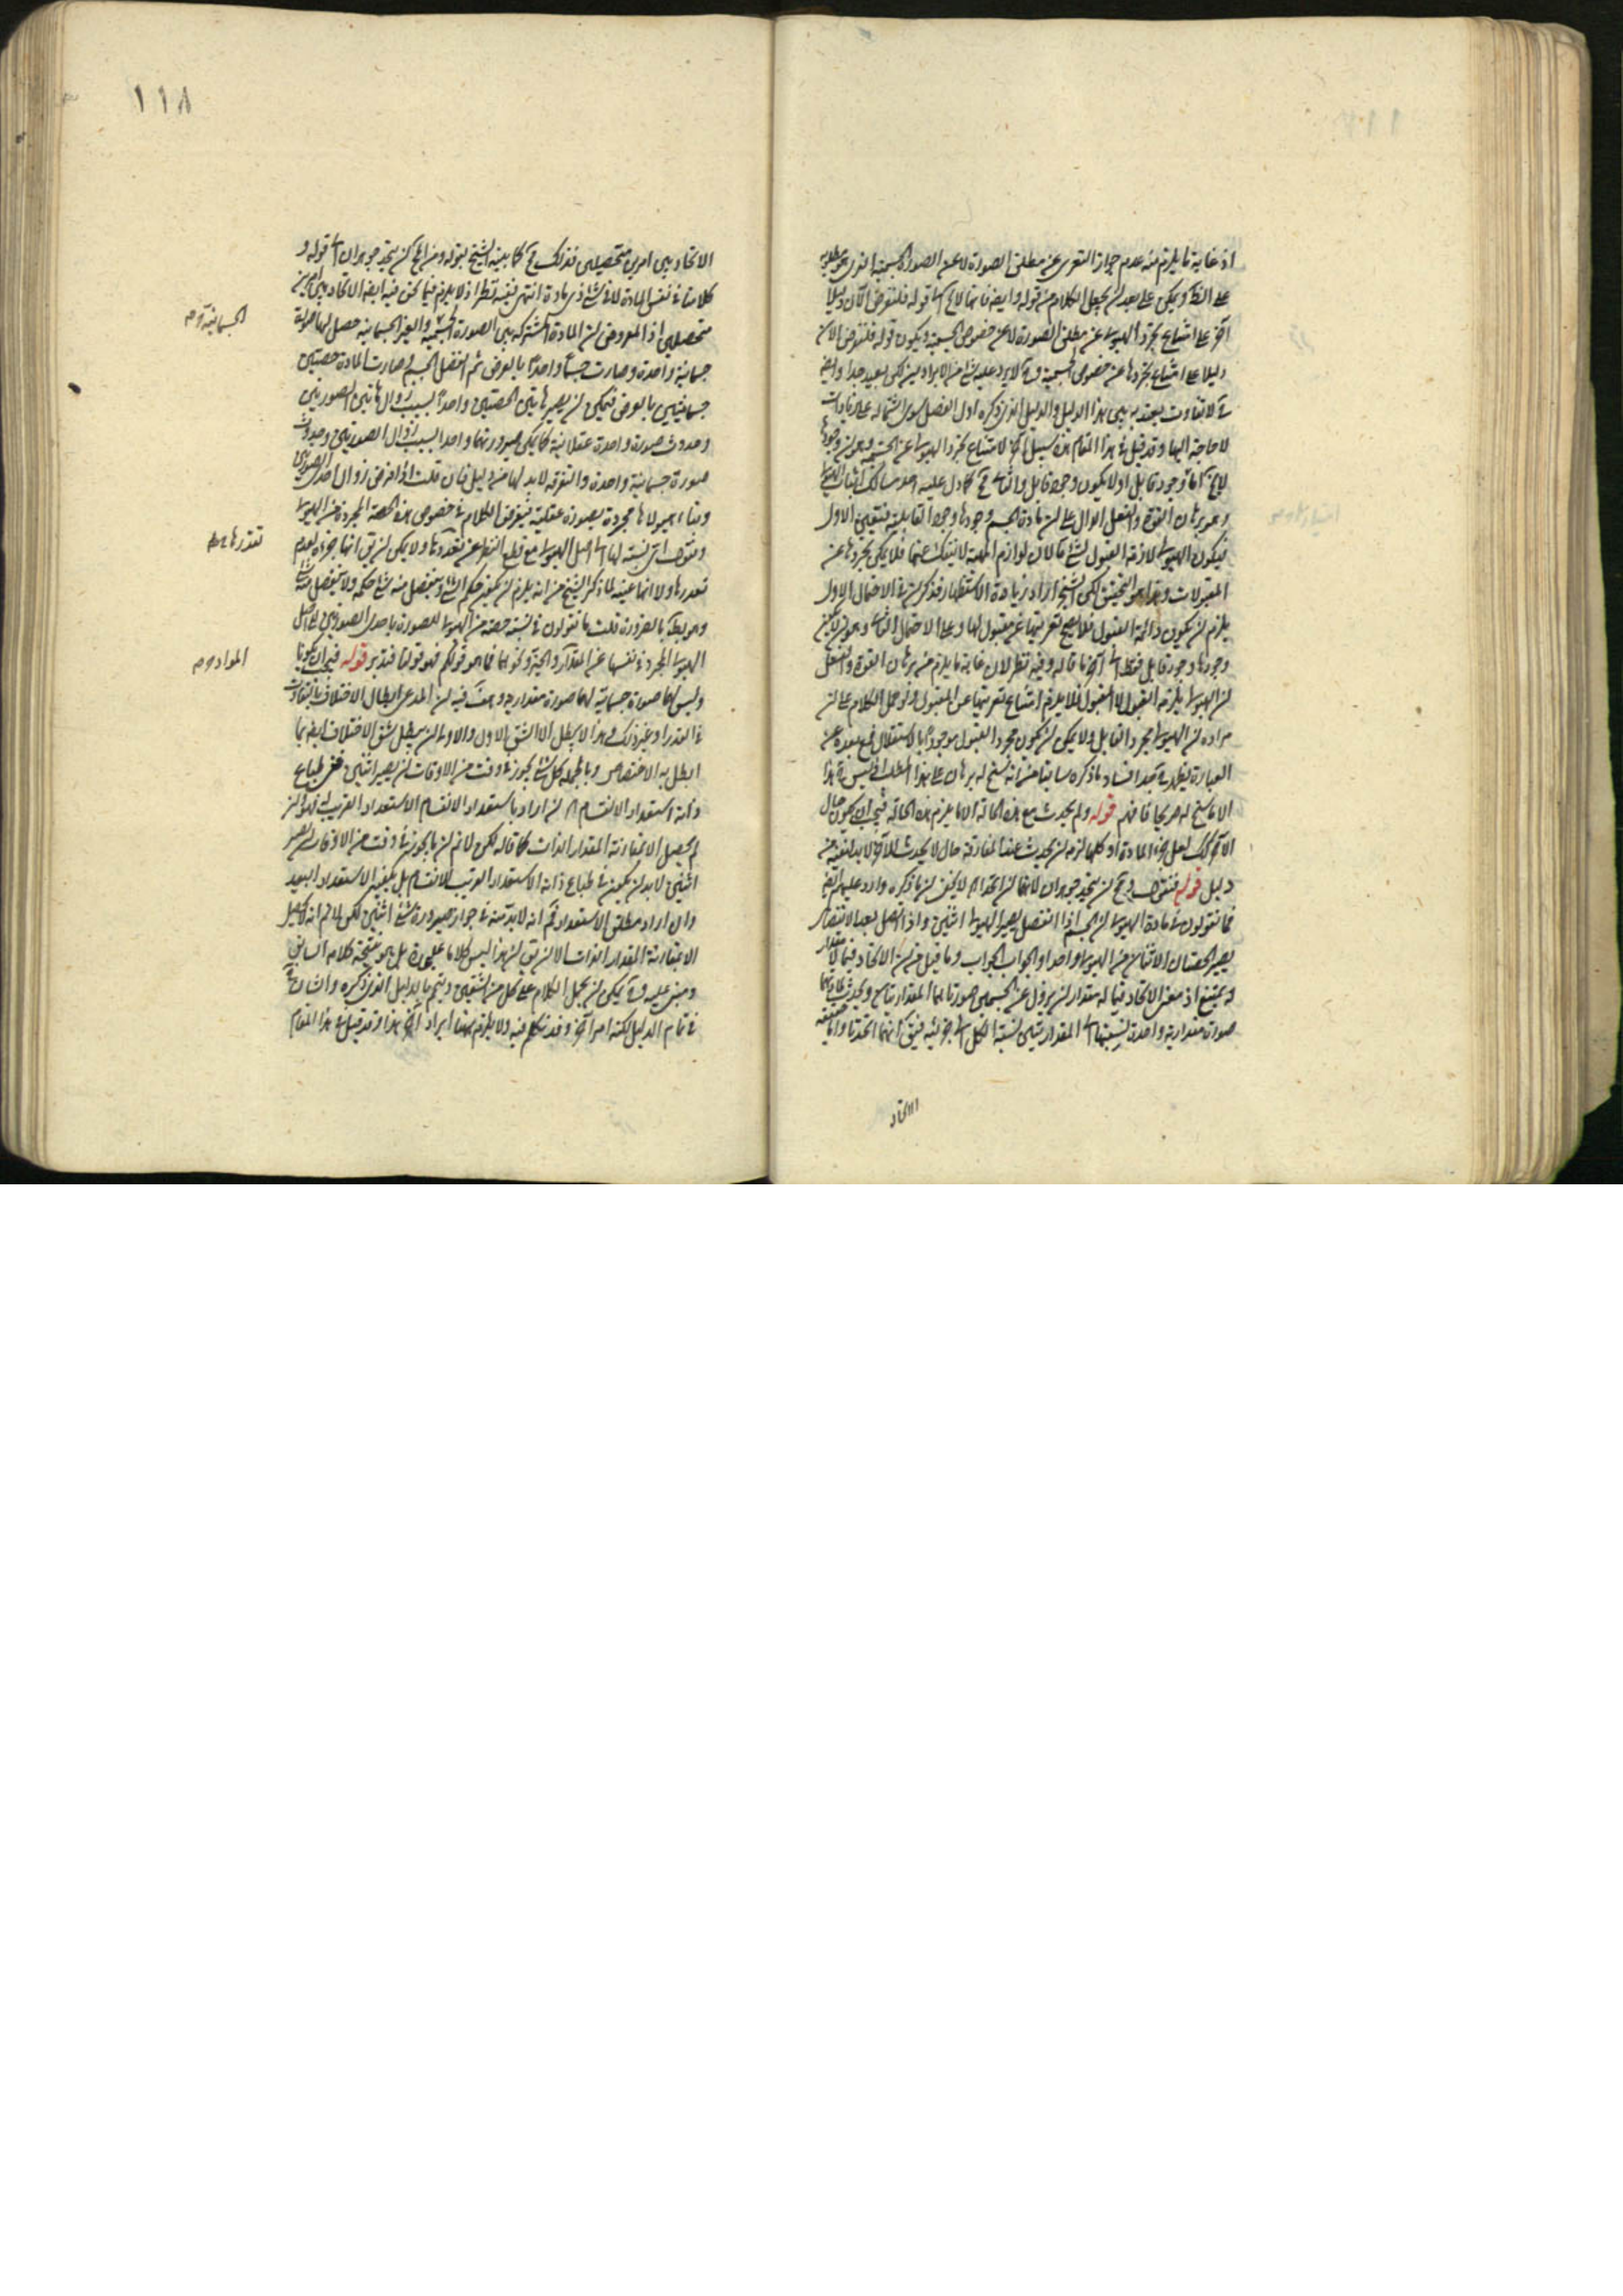 اذ غاية ما يلزم منه عدم جواز التعرى عن مطلق الصورة لا عن الصورة الجسمية الذى هو مطلوبه
على انه يمكن على بعد ان يجعل الكلام من قوله وايضا فانها لا يخ الى قوله فلنفرض الآن دليلا
آخر على امتناع تجرد الهيولى عن مطلق الصورة لا عن خصوص الجسمية ويكون قوله فلنفرض الآن
دليلا على امتناع تجردها عن خصوص الجسمية وح لا يرد عليه شئ من الايراد لكن بعيد جدا وايض
ح لا تفاوت يعتد به بين هذا الدليل والدليل الذى ذكره اول الفصل سوى اشتماله على زيادات
لا حاجة اليها وقد قيل فى هذا المقام هذه سبيل آخر لامتناع تجرد الهيولى عن الجسمية وهو ان وجودها
لا يخ اما وجود قابل او لا يكون وجود قابل والثانى مح كما دل عليه احد مسالك اثبات الهيولى
وهو برهان القوة والفعل الدال على ان مادة الجسم وجودها وجود القابلية فتعين الاول
فيكون الهيولى لازمة القبول لشئ ما لان لوازم المهية لا ينفك عنها فلا يمكن تجردها عن
المقبولات وهذا هو التحقيق لكن الشيخ اراد زيادة الاستظهار فذكر ان فى الاحتمال الاول
يلزم ان يكون دائمة القبول فلا يصح تعريتها عن مقبول لها وعلى الاحتمال الثانى وهو ان لا يكون
وجودها وجود قابل فقط الى آخر ما قاله وفيه نظر لان غاية ما يلزم من برهان القوة والفعل
ان الهيولى يلزمه القبول لا المقبول فلا يلزم امتناع تعريتها عن المقبول ولو حمل الكلام على ان
مراده ان الهيولى مجرد القابل ولا يمكن ان يكون مجرد القبول موجودا بالاستقلال فمع بعده عن
العبارة يظهر فساده بما ذكره سابقا من انه سنح له برهان على هذا المطلب اذ ليس هذا
الا ما سنح له صريحا فافهم قوله ولم يحدث مع هذه الحالة الا ما يلزم هذه الحالة فيجب ان يكون حال
الآخر كذلك لعل جزء المادة او كلها لزمه ان يحدث عند المفارقة حال لا يحدث للآخر لا بد لنفيه من
دليل قوله فنقول ومح ان يتحد جوهران لانهما ان اتحدا الخ لا يخفى ان ما ذكره وارد عليهم ايض
فما تقولون فى مادة الهيولى ان الجسم اذا انفصل يصير الهيولى اثنين واذا اتصل بعد الانفصال
يصير الحصتان الاثنتان من الهيولى واحدا والجواب الجواب وما قيل من ان الاتحاد فيما لا مقدار
له يمتنع اذ معنى الاتحاد فيما له مقدار ان يزول عن الجسمين صورتاهما المقداريتان ويحدث لمادتهما
صورة مقدارية واحدة نسبتها الى المقداريتين نسبة الكل الى جزئيه فيق انهما اتحدتا واما حقيقة
الاتحاد
١١٨
الاتحاد بين امرين متحصلين فذلك مح كما بينه الشيخ بقوله ومن المح ان يتحد جوهران الى قوله و
كلامنا فى نفس المادة لا فى شئ ذى مادة انتهى ففيه نظر اذ لا يلزم فيما نحن فيه ايض الاتحاد بين امرين
متحصلين اذ المفروض ان المادة المشتركة بين الصورة الجسمية والغير الجسمانية حصل لها صورة
جسمانية واحدة وصارت جسما واحدا بالعرض ثم انفصل الجسم وصارت المادة حصتين
جسمانيتين بالعرض فيمكن ان يصير هاتين الحصتين واحدا بسبب زوال هاتين الصورتين
وحدوث صورة واحدة عقلانية كما يمكن صيرورتهما واحدا بسبب زوال الصورتين وحدوث
صورة جسمانية واحدة والتفرقة لا بد لها من دليل فان قلت اذا فرض زوال احدى الصورتين
وبقاء هيولاها مجردة بصورة عقلية فيفرض الكلام فى خصوص هذه الحصة المجردة من الهيولى
ونقول اى نسبة لها الى اصل الهيولى مع قطع النظر عن تعددها ولا يمكن ان يق انها جزؤه لعدم
تقدرها ولا انها عينه لما ذكر الشيخ من انه يلزم ان يكون حكم الشئ وينفصل منه شئ حكمه ولا ينفصل منه شئ
وهو بط بالضرورة قلت ما تقولون فى نسبة حصة من الهيولى للصورة باحدى الصورتين الى اصل
الهيولى المجرد فى نفسها عن المقدار والجزء ونحوهما فما هو قولكم فهو قولنا فتدبر قوله فيجب ان يكونا
وليس لهما صورة جسمانية لهما صورة مقدارية وهف فيه ان المدعى ابطال الاختلاف بالتفاوت
فى القدر او غير ذلك وهذا لا يبطل الا الشق الاول والاولى ان يبطل شق الاختلاف ايض بما
ابطل به الاختصاص وبالجملة كل شئ يجوز فى وقت من الاوقات ان يصير اثنين ففى طباع
ذاته استعداد الانقسام الخ ان اراد باستعداد الانقسام الاستعداد القريب له فهو وان
لم يحصل الا بمقارنة المقدار الذات كما قاله لكن لا نم ان ما يجوز فى وقت من الاوقات ان يصير
اثنين لا بد ان يكون فى طباع ذاته الاستعداد القريب للانقسام بل يكفيه الاستعداد البعيد
وان اراد مطلق الاستعداد فنم انه لا بد منه فى جواز صيرورة شئ اثنين لكن لا نم انه لا يحصل
الا بمقارنة المقدار الذات الا ان يق ان هذا ليس كلاما عليحدة بل هو نتيجة كلام السابق
ومبنى عليه وح يمكن ان يحمل الكلام على كل من الشقين ويتم بالدليل الذى ذكره والشان
فى تمام الدليل لكنه امر آخر وقد نتكلم فيه ولا يلزم ههنا ايراد آخر هذا وقد قيل فى هذا المقام
الجسمانية م
تقدرها ظ
المواد م